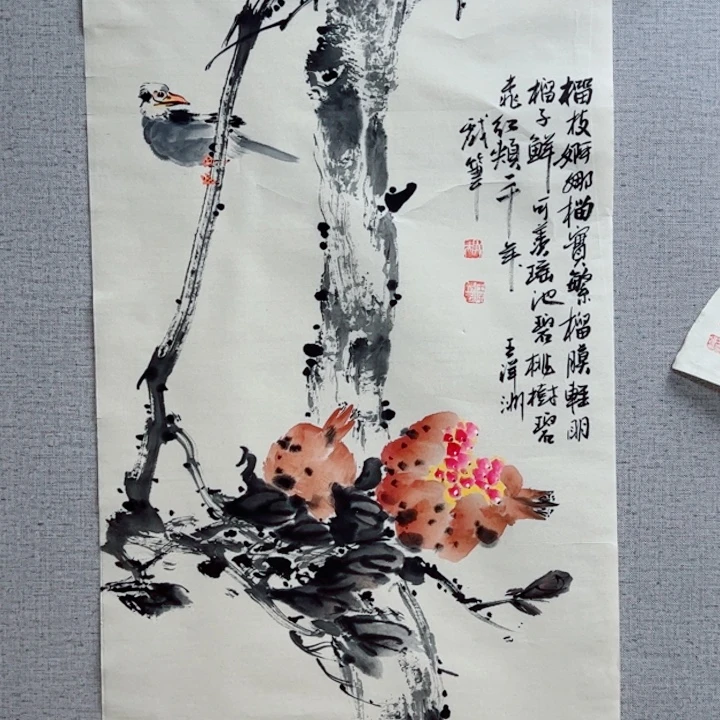 榴枝婀娜榴實繁榴膜輕明
榴子鮮可羨瑶池碧桃樹碧
桃红頰一千年 王洋洲
戲筆